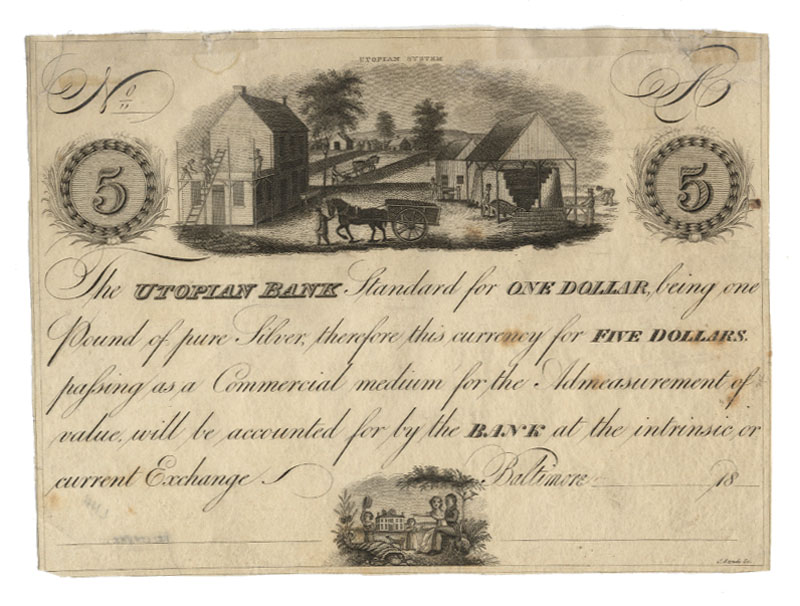 UTOPIAN SYSTEM
No A
5 5
The UTOPIAN BANK Standard for ONE DOLLAR, being one
Pound of pure Silver, therefore this currency for FIVE DOLLARS.
paſsing as a Commercial medium for the Admeasurement of
value, will be accounted for by the BANK at the intrinsic or
current Exchange. Baltimore 18